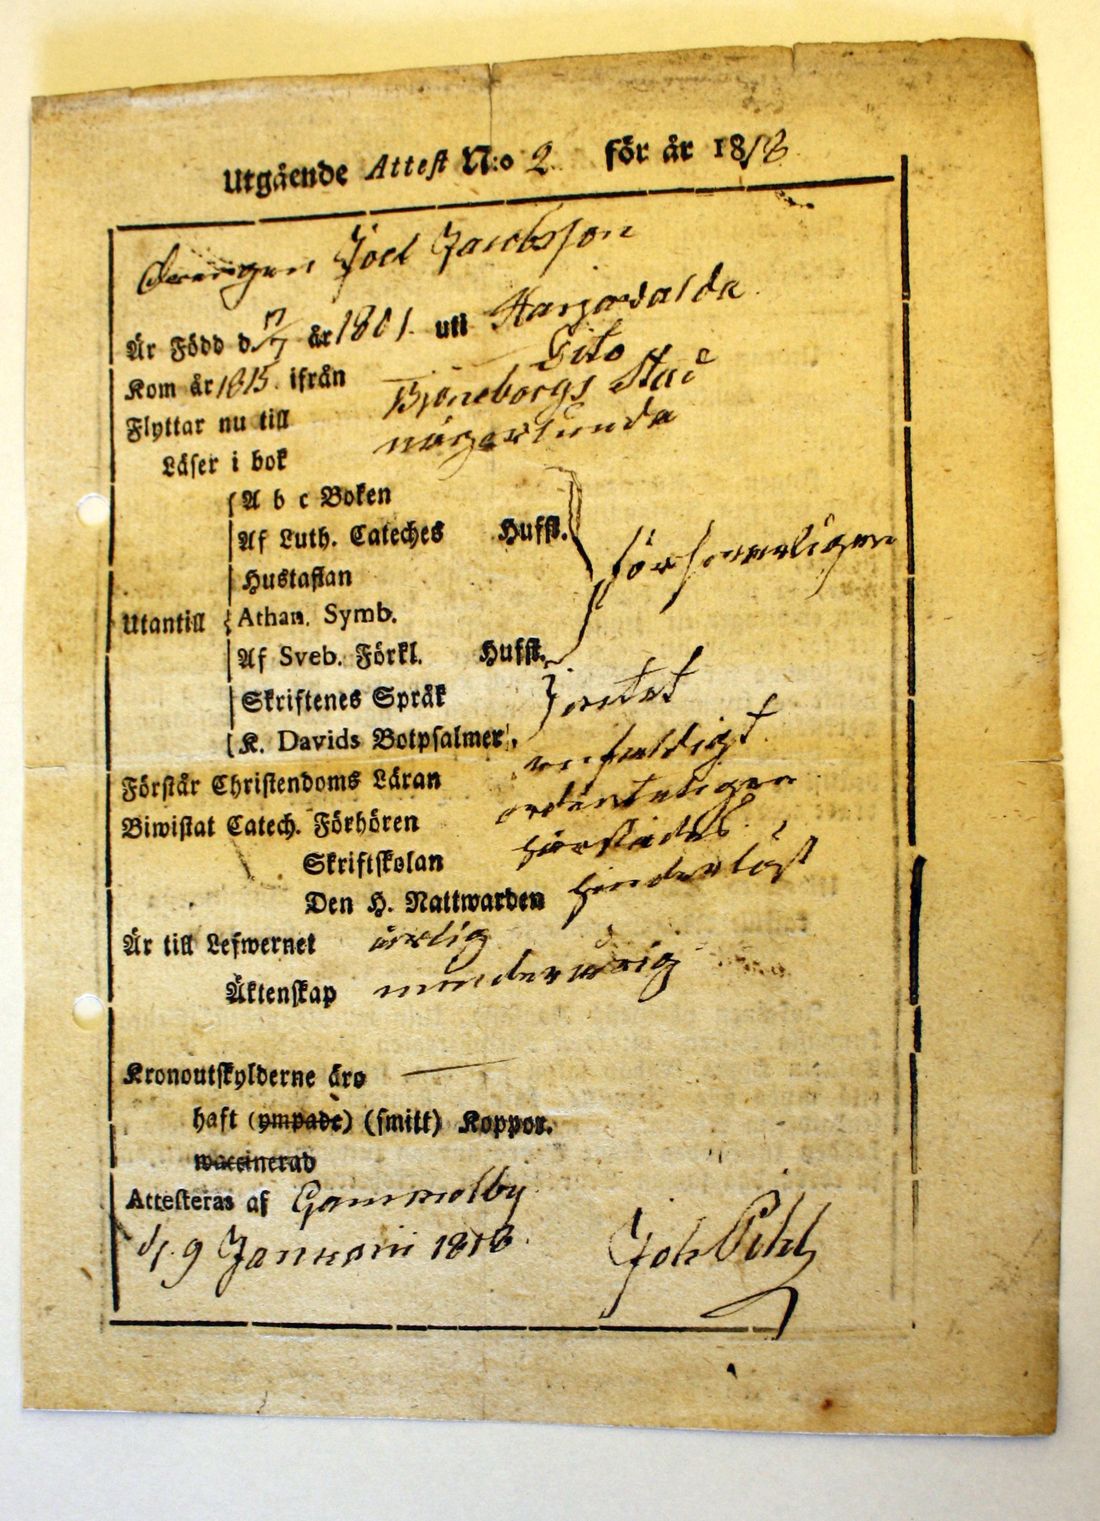 Utgående Attest N:o 2 för år 1818
Drengen Joel Jacobsson
Är Född d. 7/7 år 1801. uti Harjavalda
Kom år 1815. ifrån Dito
Flyttar nu till Björneborgs Stad
Läser i bok någorlunda
A b c Boken
Af Luth. Cateches Hufst.
Hustaflan försvarligen
Utantill Athan. Symb.
Af Sveb. Förkl. Hufst.
Skriftenes Språk intet
K. Davids Botpsalmer,
Förstår Christendoms Läran enfaldigt
Biwistat Catech. Förhören ordenteligen
Skriftskolan härstädes
Den H. Nattwarden hinderlöst
Är till Lefwernet ärlig
Äktenskap minderårig
Kronoutskylderne äro —
haft (ympade) (smitt) Koppor.
waccinerad
Attesteras af Gammelby
d. 9 Januarii 1818. Joh Pihl